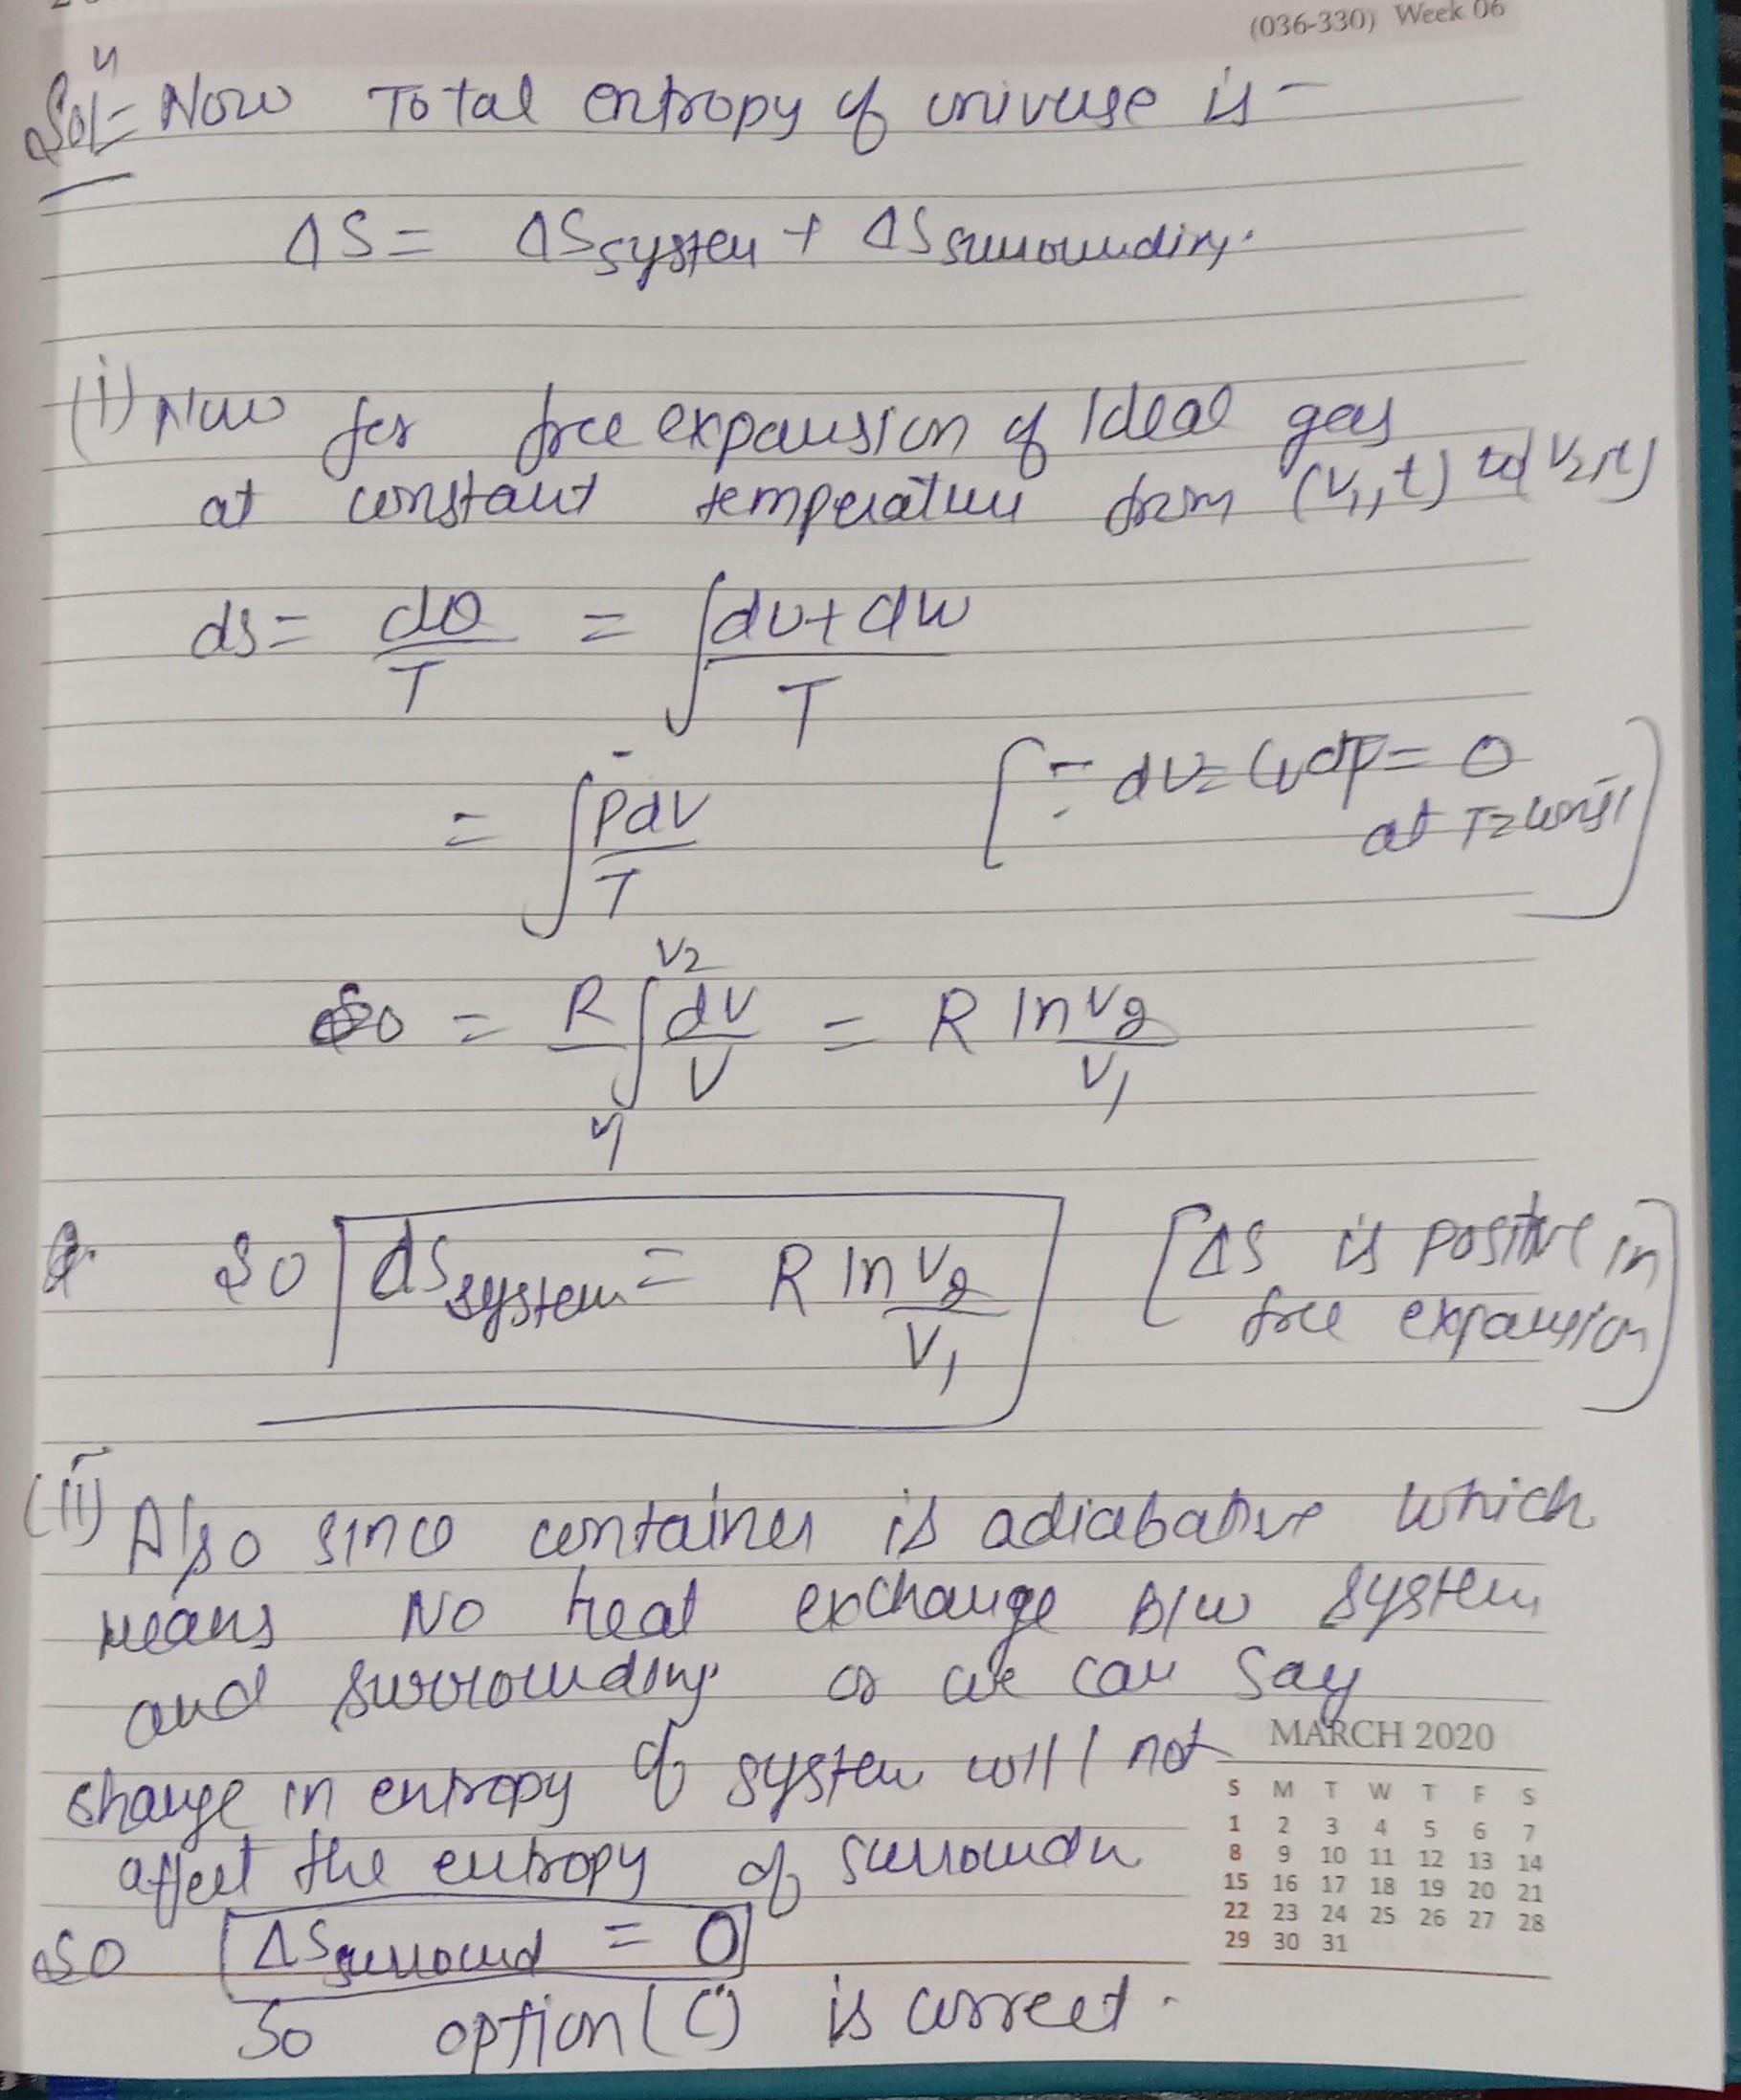 (036-330) Week 06
Solⁿ= Now Total entropy of universe is -
ΔS = ΔS system + ΔS surrounding.
(i) Now for free expansion of Ideal gas
at constant temperature from (V1, t) to (V2, t)
ds = dQ/T = ∫ (dU + dW)/T
= ∫ PdV/T [∵ dU = CvdT = 0
at T = const]
So = R ∫_{V1}^{V2} dV/V = R ln V2/V1
So dS system = R ln V2/V1 [ΔS is positive in
free expansion]
(ii) Also since container is adiabative which
means No heat exchange b/w system
and surrounding. or we can say
change in entropy of system will not
affect the entropy of surroundn
So ΔS surround = 0
So option (C) is correct.
MARCH 2020
S M T W T F S
1 2 3 4 5 6 7
8 9 10 11 12 13 14
15 16 17 18 19 20 21
22 23 24 25 26 27 28
29 30 31